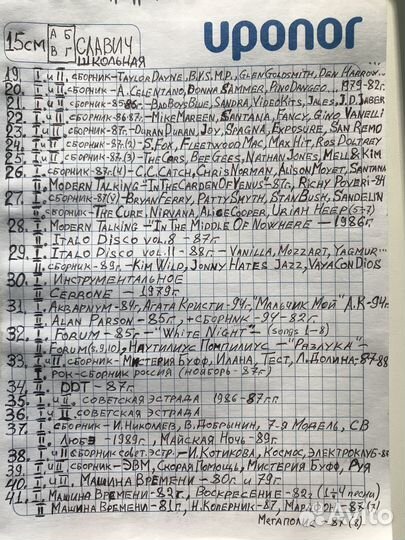 15см А Б В Г СЛАВИЧ ШКОЛЬНАЯ
uponor
19. I и II, сборник-TAYLOR DAYNE, B.V.S.M.P., GLEN GOLDSMITH, DEN HARROW...
20. I и II, сборник - A. CELENTANO, DONNA SAMMER, PINO DANGGO... 1979-82г.
21. I и II, сборник-85 86г.-BAD BOYS BLUE, SANDRA, VIDEO KITS, JALES, J.D. JABER
22. I и II, сборник-86 87г.-MIKE MAREEN, SANTANA, FANCY, GINO VANELLI
23. I и II, сборник-87г.-DURAN DURAN, JOY, SPAGNA, EXPOSURE, SAN REMO
24. I и II, сборник-87г.(2)-S. FOX, FLEETWOOD MAC, MAX HIT, ROS DOLTREY
25. I и II, сборник-87г.(3)-THE CARS, BEE GEES, NATHAN JONES, MELL & KIM
26. I сборник-87г.(4)-C.C. CATCH, CHRIS NORMAN, ALISON MOYET, SANTANA
II MODERN TALKING-IN THE GARDEN OF VENUS-87г., RICHY POVERI-84
27. I сборник-87(4)-BRYAN FERRY, PATTY SMYTH, STAN BUSH, SANDELIN
II сборник-THE CURE, NIRVANA, ALICE COOPER, URIAH HEEP (5+7)
28. I MODERN TALKING "IN THE MIDDLE OF NOWHERE - 1986г.
II ITALO DISCO VOL.8 - 87г.
29. I ITALO DISCO VOL.11 - 88г. - VANILLA, MOZZART, YAGMUR...
II сборник-89г.-KIM WILD, JONNY HATES JAZZ, VAYA CON DIOS
30. I ИНСТРУМЕНТАЛЬНОЕ
II CERRONE - 1979г.
31. I АКВАРИУМ-84г, АГАТА КРИСТИ-94-"МАЛЬЧИК МОЙ" Л.К-94г.
II ALAN PARSON - 85г. + СБОРНИК - 94-82г.
32. I FORUM - 85г. - "WHITE NIGHT" - (SONGS 1-8)
II FORUM(8,9,10), НАУТИЛИУС ПОМПИЛИУС - "РАЗЛУКА"
33. I и II сборник-МИСТЕРИЯ БУФФ, ИЛАНА, ТЕСТ, Л. ДОЛИНА-87-88
РОК-СБОРНИК РОССИЯ (НОЯБОРЬ-87г.)
34. DDT - 87г.
35. I и II СОВЕТСКАЯ ЭСТРАДА 1986-87г.г
36. I и II СОВЕТСКАЯ ЭСТРАДА
37. I сборник-И. НИКОЛАЕВ, В. ДОБРЫНИН, 7-Я МОДЕЛЬ, СВ
II ЛЮБЭ-1989г., МАЙСКАЯ НОЧЬ-89г.
38. I и II сборник совет. эстр.-И. КОТИКОВА, КОСМОС, ЭЛЕКТРОКЛУБ-88
39. I и II сборник-ЭВМ, СКОРАЯ ПОМОЩЬ, МИСТЕРИЯ БУФФ, РУЯ
40. I и II. МАШИНА ВРЕМЕНИ - 80г. и 79г.
41. I МАШИНА ВРЕМЕНИ-82г, ВОСКРЕСЕНИЕ-82г (1и4 песни)
II МАШИНА ВРЕМЕНИ-81г., Н. КОПЕРНИК-87, МАРАФОН-87(7)
МЕГАПОЛИС-87(8)
Avito